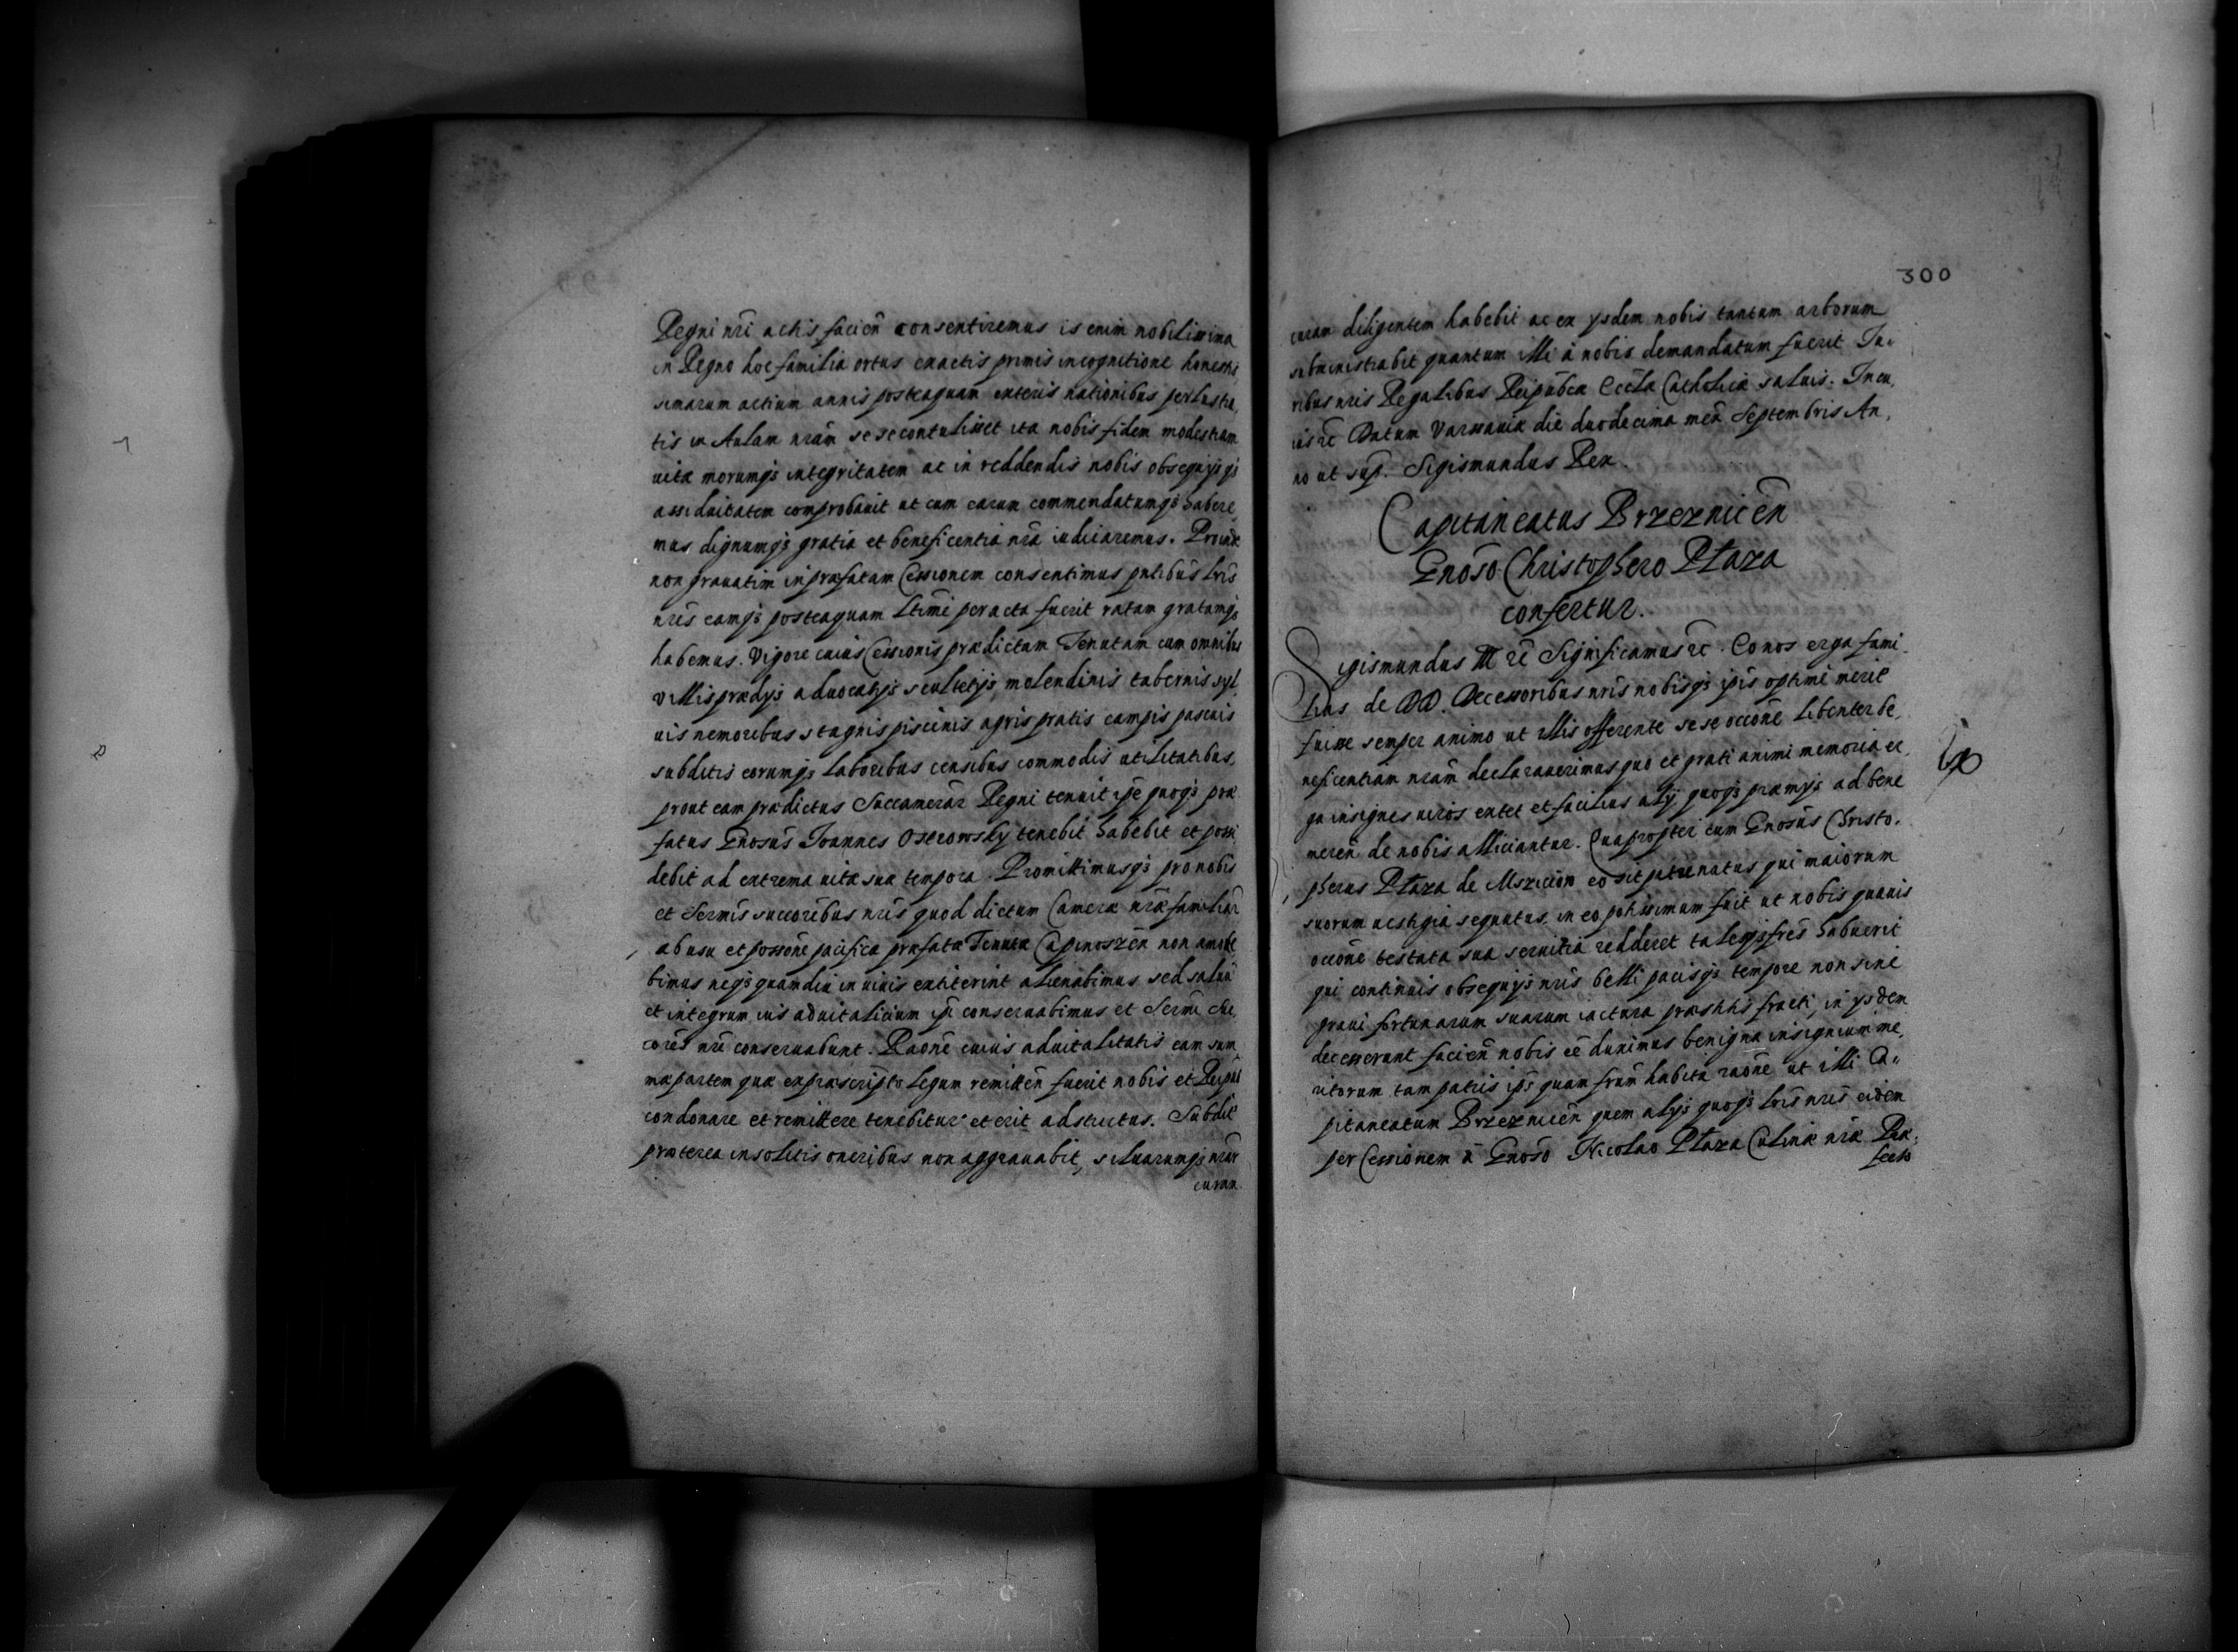 Regni nri actis facień consentiremus is enim nobilissima
in Regno hoc familia ortus exactis primis in cognitione honestis
simarum artium annis posteaquam exteris nationibus perlustra,
tis in Aulam nram sese contulisset ita nobis fidem modestiam
uitæ morumqs integritatem ac in reddendis nobis obsequijs qs
assiduitatem comprobauit ut eum carum commendatumqs habere,
mus dignumqs gratia et beneficentia nra iudicaremus. Proinde
non grauatim in præfatam Cessionem consentimus pntibus lris
nris eamqs posteaquam ltime peracta fuerit ratam gratamqs
habemus. Vigore cuius Cessionis prædictam Tenutam cum omnibus
villis prædijs aduocatijs scultetijs, molendinis tabernis syl,
uis nemoribus stagnis piscinis agris pratis campis pascuis
subditis eorumqs laboribus censibus commodis utilitatibus,
prout eam prædictus Succamerar Regni tenuit ipe quoqs præ
fatus Gnosus Ioannes Oserowsky tenebit habebit et possi
debit ad extrema uitæ suæ tempora. Promittimusqs pro nobis
et Sermis succoribus nris quod dictum Cameræ nræ familiar
ab usu et possone pacifica præfatæ Tenutæ Capinoszen non amoue
bimus neqs quamdiu in uiuis extiterint alienabimus sed saluu
et integrum ius aduitalicium ipi conseruabimus et Sermi
cores nri conseruabunt. Raone cuius aduitalitatis eam sum
mæ partem quæ ex præscripto legum remitten fuerit nobis et Reipub
condonare et remittere tenebitur et erit adstrictus. Subdit
præterea insolitis oneribus non aggrauabit, siluarumqs nrar
curam
300
curam diligentem habebit ac ex ysdem nobis tantum arborum
subministrabit quantum illi à nobis demandatum fuerit Iu,
ribus nris Regalibus Reipubcæ Eccla Catholicæ saluis. In cu,
ius rē Datum Varsauiæ die duodecima men Septembris An,
no ut sup. Sigismundus Rex.
Capitaneatus Brzeznicēn
Gnoso Christophero Płaza
confertur.
Sigismundus III rē Significamus rē. Eo nos erga fami
lias de DD. Accessoribus nris nobisqs ipis optime merit
fuisse semper animo ut illis offerente sese occone libenter be,
neficentiam nram declarauerimus quo et grati animi memoria er
ga insignes uiros extet et facilius alij quoqs præmijs ad bene
meren de nobis alliciantur. Quapropter cum Gnosus Christo,
pherus Płaza de Mszicion eo sit patre natus qui maiorum
suorum uestigia sequutus in eo potissimum fuit ut nobis quauis
occone testata sua seruitia redderet talesqs fres habuerit
qui continuis obsequijs nris belli pacisqs tempore non sine
graui fortunarum suarum iactura præstitis fracti, in ysdem
decesserunt facien nobis ee duximus benigna insignium me,
ritorum tam patris ips quam frum habita raone ut illi Ca,
pitaneatum Brzeznicen quem alijs quoqs lris nris eidem
per Cessionem à Gnoso Nicolao Płaza Culinæ nræ Præ,
fecto